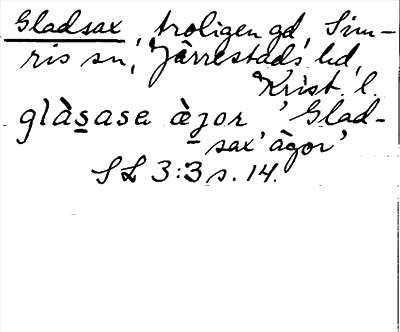 Gladsax, troligen gd, Sim-
ris sn, Järrestads hd,
Krist. l.
glàsase àjor 'Glad-
sax' ägor'
SL 3:3 s. 14.